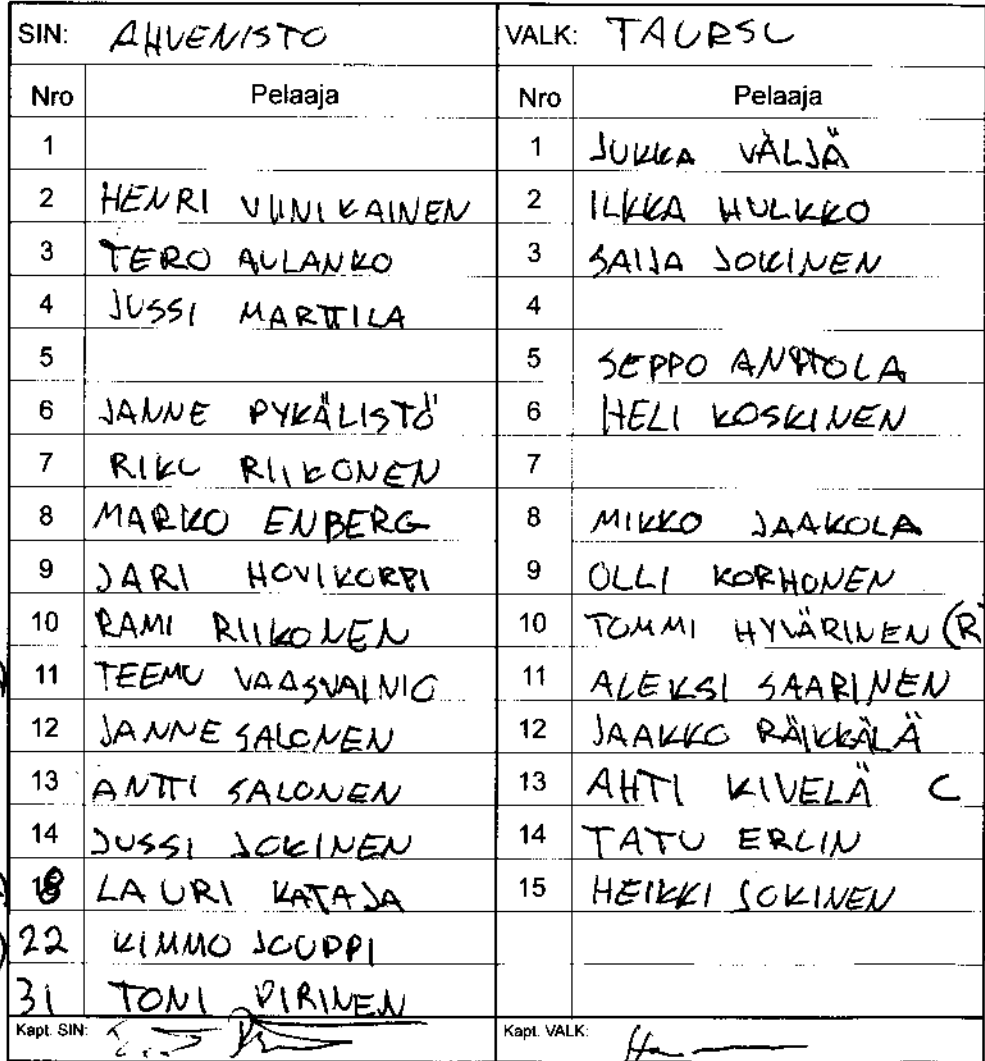 SIN: AHVENISTO VALK: TAURSU
Nro Pelaaja Nro Pelaaja
1 1 JUKKA VÄLJÄ
2 HENRI VIINIKAINEN 2 ILKKA HULKKO
3 TERO AULANKO 3 SAIJA JOKINEN
4 JUSSI MARTTILA 4
5 5 SEPPO ANTTOLA
6 JANNE PYKÄLISTÖ 6 HELI KOSKINEN
7 RIKU RIIKONEN 7
8 MARKO ENBERG 8 MIKKO JAAKOLA
9 JARI HOVIKORPI 9 OLLI KORHONEN
10 RAMI RIIKONEN 10 TOMMI HYVÄRINEN (R
11 TEEMU VAASVAINIO 11 ALEKSI SAARINEN
12 JANNE SALONEN 12 JAAKKO RÄIKKÄLÄ
13 ANTTI SALONEN 13 AHTI KIVELÄ C
14 JUSSI JOKINEN 14 TATU ERLIN
18 LAURI KATAJA 15 HEIKKI JOKINEN
22 KIMMO JOUPPI
31 TONI PIRINEN
Kapt. SIN: Kapt. VALK: